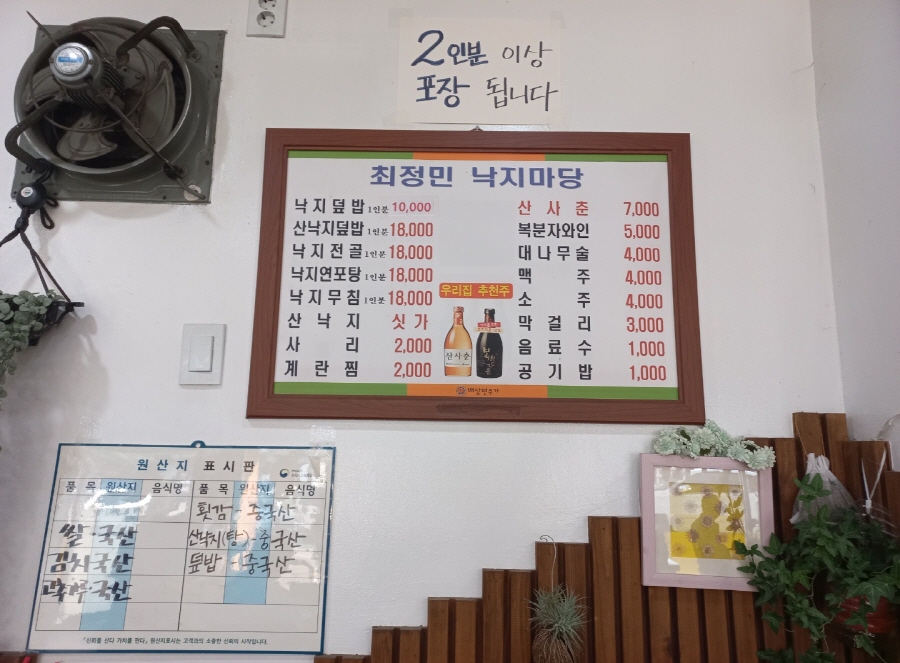 2인분 이상
포장 됩니다
최정민 낙지마당
낙지덮밥 1인분 10,000
산낙지덮밥 1인분 18,000
낙지전골 1인분 18,000
낙지연포탕 1인분 18,000
낙지무침 1인분 18,000
산낙지 싯가
사리 2,000
계란찜 2,000
우리집 추천주
산사춘
산사춘 7,000
복분자와인 5,000
대나무술 4,000
맥주 4,000
소주 4,000
막걸리 3,000
음료수 1,000
공기밥 1,000
배상면주가
원산지 표시판
품목 원산지 음식명 품목 원산지 음식명
횟감 - 중국산
쌀 - 국산 산낙지(탕) - 중국산
김치 국산 덮밥 - 중국산
고춧가루 국산
「신뢰를 산다 가치를 판다」 원산지표시는 고객과의 소중한 신뢰의 시작입니다.